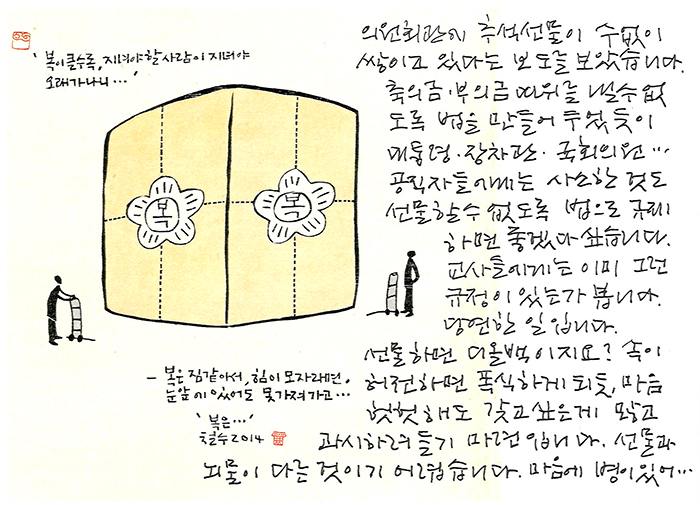 '복이클수록, 지녀야할사람이 지녀야
오래가나니…'
복
복
- 복은 짐같아서, 힘이 모자라면,
눈앞에 있어도 못가져가고…
'복은…'
철수 2014
의원회관에 추석선물이 수없이
쌓이고 있다는 보도를 보았습니다.
축의금·부의금 따위를 낼수없
도록 법을 만들어 두었듯이
대통령·장차관·국회의원…
공직자들에게는 사소한 것도
선물할수 없도록 법으로 규제
하면 좋겠다 싶습니다.
교사들에게는 이미 그런
규정이 있는가 봅니다.
당연한 일입니다.
선물하면 디올백이지요? 속이
허전하면 폭식하게 되듯, 마음
헛헛해도 갖고싶은게 많고
과시하려들기 마련입니다. 선물과
뇌물이 다른 것이기 어렵습니다. 마음에 병이 있어…